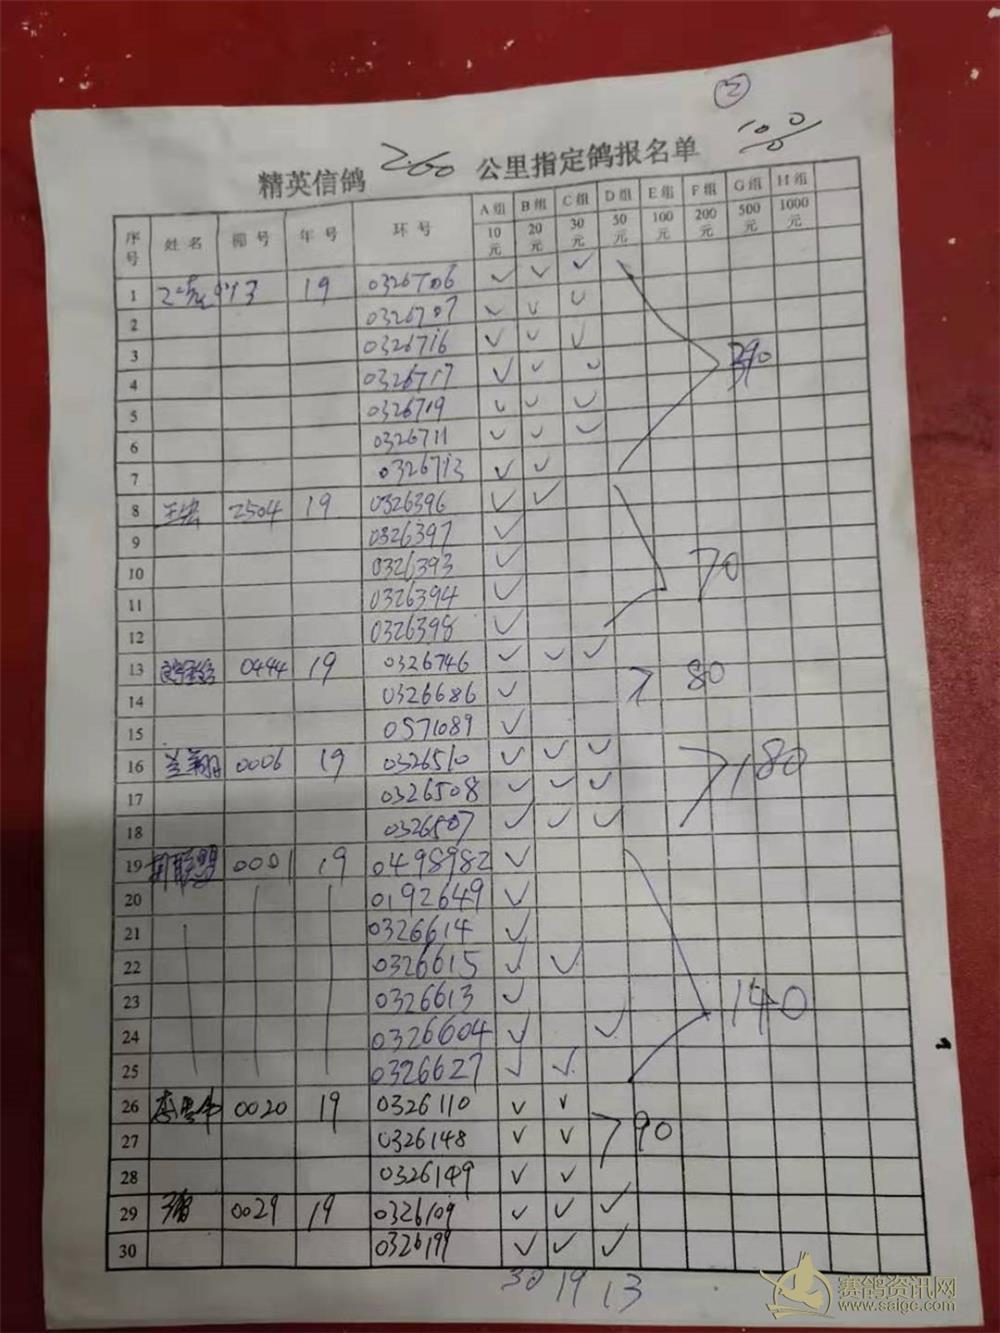 2
100/0
精英信鸽 260 公里指定鸽报名单
序号 姓名 棚号 年号 环号 A组10元 B组20元 C组30元 D组50元 E组100元 F组200元 G组500元 H组1000元
1 19 0326706 ✓ ✓ ✓
2 0326707 ✓ ✓ ✓
3 0326716 ✓ ✓ ✓
4 0326717 ✓ ✓ ✓ 390
5 0326719 ✓ ✓ ✓
6 0326711 ✓ ✓ ✓
7 0326713 ✓ ✓
8 王宏 2504 19 0326396 ✓ ✓
9 0326397 ✓
10 0326393 ✓ 70
11 0326394 ✓
12 0326398 ✓
13 0444 19 0326746 ✓ ✓ ✓
14 0326686 ✓ 80
15 0571089 ✓
16 兰翔 0006 19 0326510 ✓ ✓ ✓
17 0326508 ✓ ✓ ✓ 180
18 0326507 ✓ ✓ ✓
19 联盟 0001 19 0498982 ✓
20 0192649 ✓
21 0326614 ✓
22 0326615 ✓ ✓
23 0326613 ✓ 140
24 0326604 ✓ ✓
25 0326627 ✓ ✓
26 0020 19 0326110 ✓ ✓
27 0326148 ✓ ✓ 90
28 0326149 ✓ ✓
29 0029 19 0326109 ✓ ✓ ✓
30 0326199 ✓ ✓ ✓
30 19 13
赛鸽资讯网
www.saigc.com